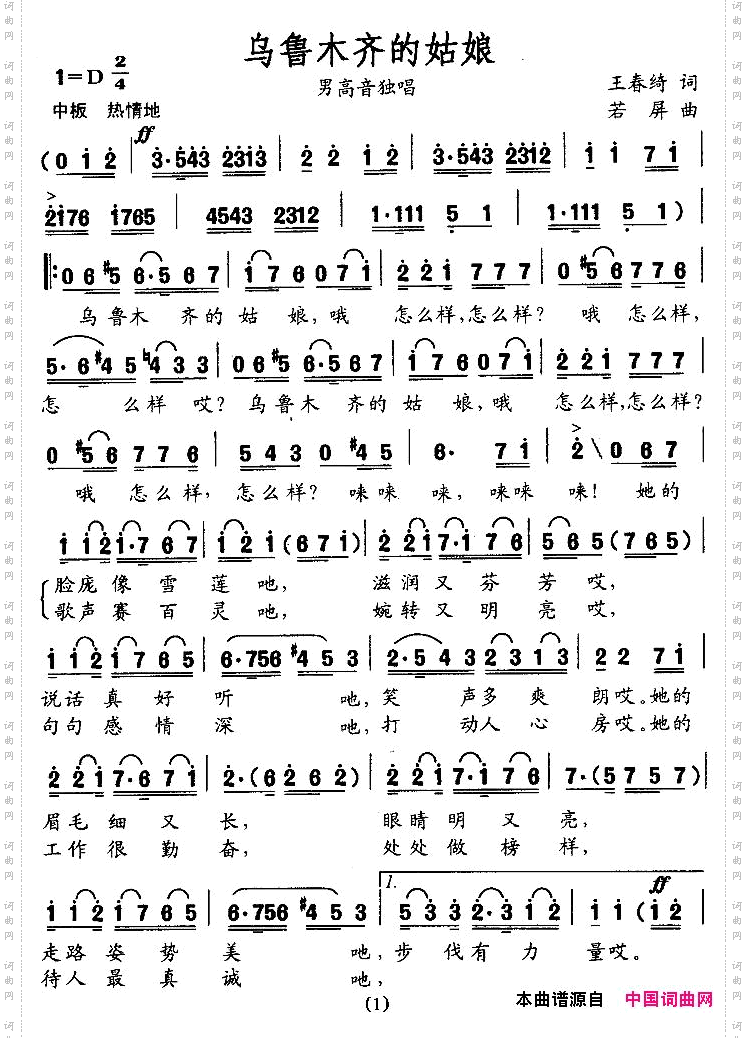 乌鲁木齐的姑娘
1=D 2/4
男高音独唱
王春绮 词
中板 热情地
若屏 曲
ff
(0 1 2 3·543 2313 2 2 1 2 3·543 2312 1 1 7 1
2176 1765 4543 2312 1·111 5 1 1·111 5 1)
0 6 #5 6·5 6 7 1 7 6 0 7 1 2 2 1 7 7 7 0 #5 6 7 7 6
乌鲁木 齐的 姑 娘,哦 怎么样,怎么样? 哦 怎么样,
5·6 #4 5 ♮4 3 3 0 6 #5 6·5 6 7 1 7 6 0 7 1 2 2 1 7 7 7
怎 么样 哎? 乌鲁木 齐的 姑 娘,哦 怎么样,怎么样?
0 #5 6 7 7 6 5 4 3 0 #4 5 6· 7 1 2 \ 0 6 7
哦 怎么样, 怎么样? 唻唻 唻, 唻唻 唻! 她的
1 1 2 1·7 6 7 1 2 1 (6 7 1) 2 2 1 7·1 7 6 5 6 5 (7 6 5)
脸庞像 雪 莲吔, 滋润又 芬 芳哎,
歌声赛 百 灵吔, 婉转又 明 亮哎,
1 1 2 1·7 6 5 6·756 #4 5 3 2·5 4 3 2 3 1 3 2 2 7 1
说话真 好 听 吔,笑 声多 爽 朗哎。她的
句句感 情 深 吔,打 动人 心 房哎。她的
2 2 1 7·6 7 1 2·(6 2 6 2) 2 2 1 7·1 7 6 7·(5 7 5 7)
眉毛细 又 长, 眼睛明 又 亮,
工作很 勤 奋, 处处做 榜 样,
1. ff
1 1 2 1·7 6 5 6·756 #4 5 3 5 3 3 2·3 1 2 1 1 (1 2
走路姿 势 美 吔,步 伐有 力 量哎。
待人最 真 诚 吔,
(1)
本曲谱源自 中国词曲网